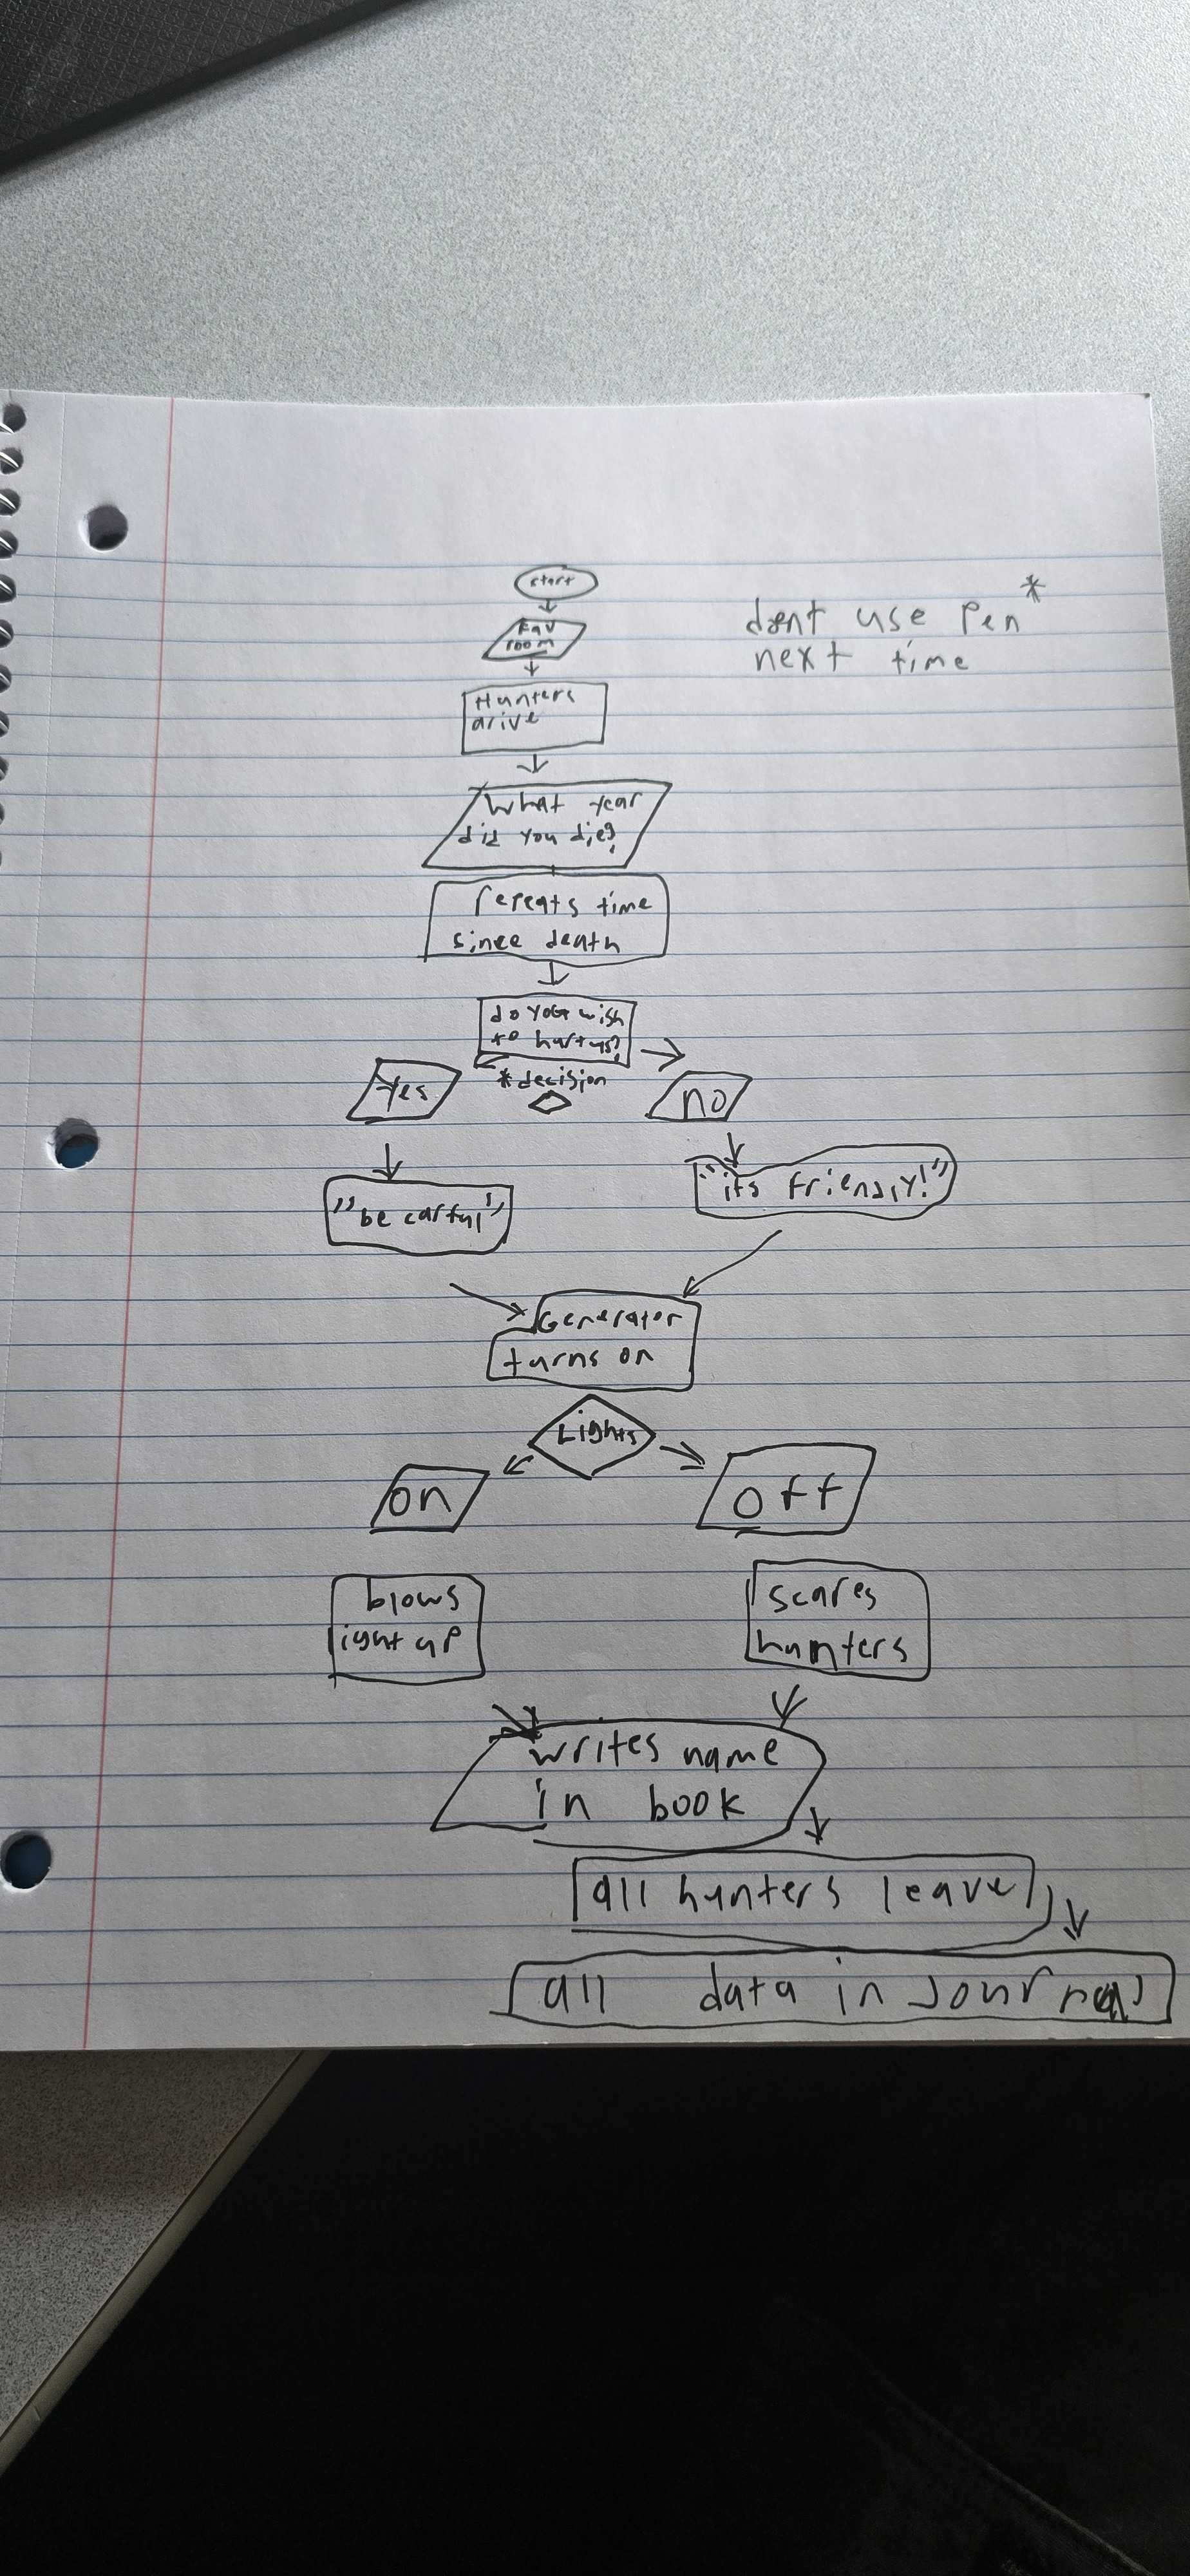 start
Fav
room
dont use Pen*
next time
Hunters
arive
What year
did you die?
repeats time
since death
do you wish
to hurt us?
yes
*decision
no
"be carful"
"its friendly!"
Generator
turns on
Lights
on
off
blows
light up
scares
hunters
writes name
in book
all hunters leave
all data in Journal